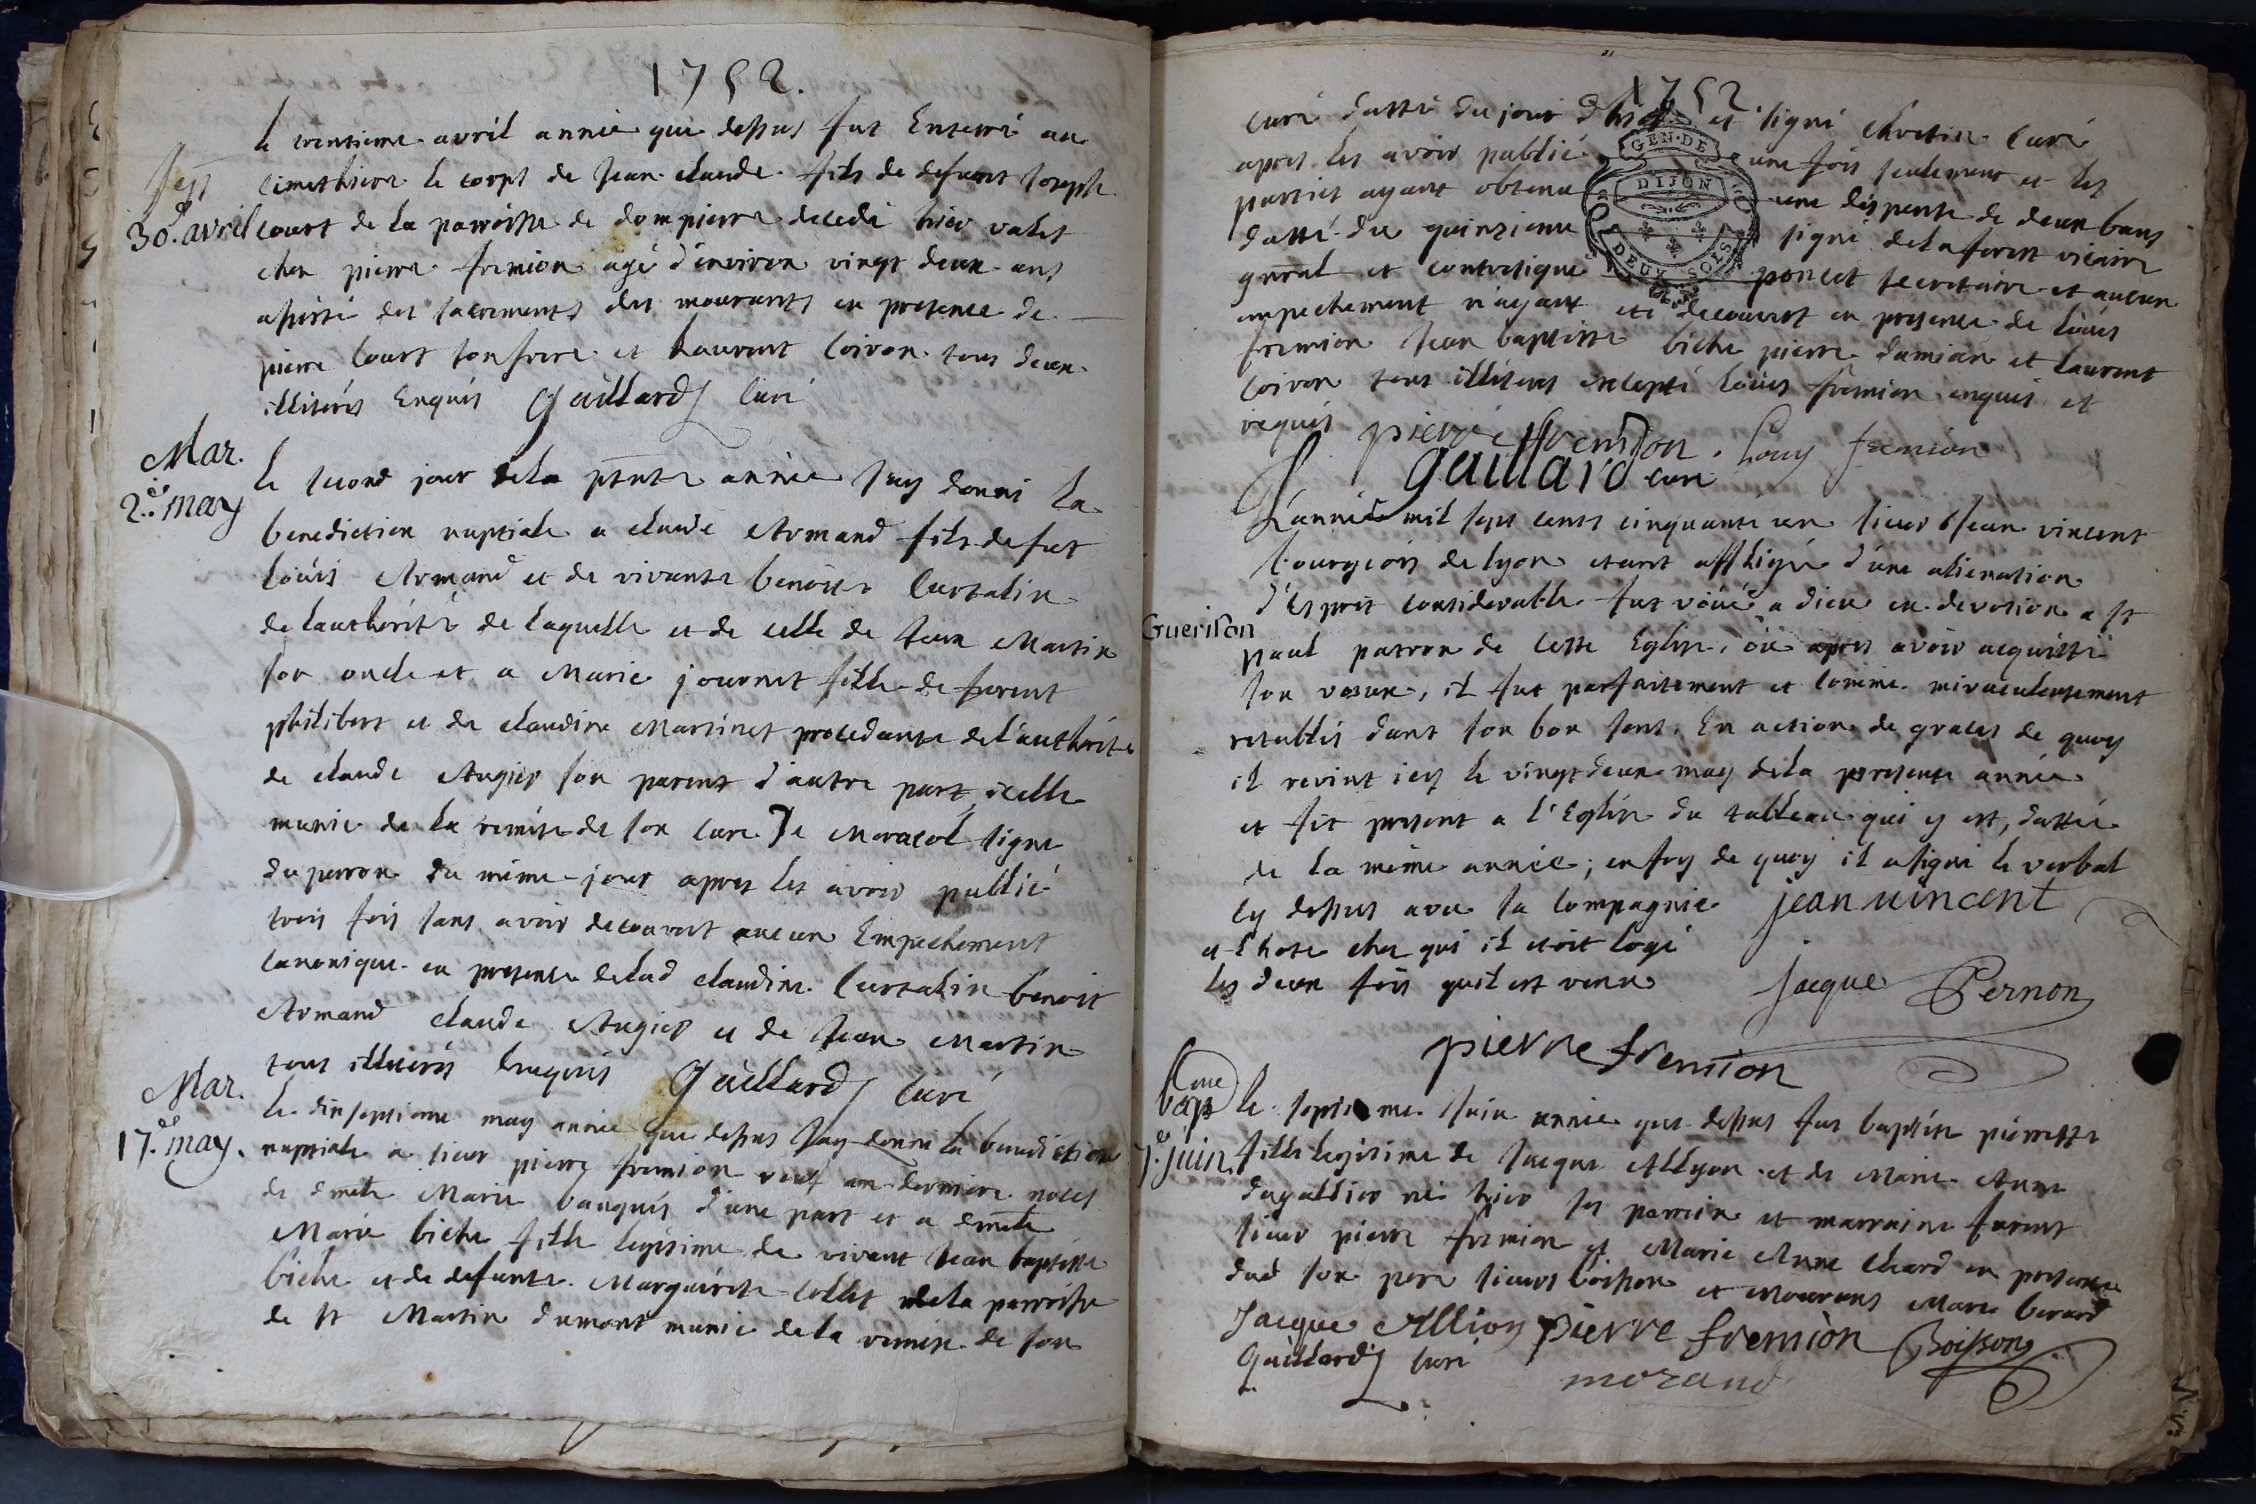 1752.
Sep
30.e avril
le trentieme avril année que dessus fut Enterré au
cimethiere le corps de Jean claude fils de defunt Joseph
court de la parroisse de dompierre decedé hier valet
chez pierre fremion agé d'environ vingt deux ans
assisté des sacrements des mourants en presence de
pierre Court son frere et Laurent Coiron tous deux
illiterés Enquis Gaillard curé
Mar.
2.e may
le second jour de la pnte année J'ay donné la
benediction nuptiale a claude Armand fils de fut
Loüis Armand et de vivante benoite Curtalin
de lauthorité de laquelle et de celle de Jean Martin
son oncle et a Marie journet fille de furent
philibert et de claudine Martinet procedante de l'authorité
de claude Augier son parent d'autre part, icelle
munie de la remise de son curé De signé
duperron du même jour apres les avoir publié
trois fois sans avoir decouvert aucun Empechement
canonique en presence de lad claudine Curtalin benoit
Armand claude Augier et de Jean Martin
tous illiterés Enquis Gaillard curé
Mar.
17.e may.
le dixseptieme may année que dessus J'ay donné la benediction
nuptiale a sieur pierre fremion veuf en derniere noces
de dmelle Marie d'une part et a dmelle
Marie biche fille legitime de vivant Jean baptiste
biche et de defunte Marguerite Collet de la parroisse
de St Martin dumont munie de la remise de son
1752
GEN. DE
DIJON
DEUX SOLS
curé datté du jour d'hier et signé chretien curé
apres les avoir publié une fois seulement et les
parties ayant obtenu une dispense de deux bans
datté du quinzieme signé delaforest vicaire
gnral et contresigné poncet secretaire et aucun
empechement n'ayant eté decouvert en presence de Loüis
fremion Jean baptiste biche pierre damian et Laurent
Coiron tous illiterés excepté Loüis fremion enquis et
requis pierre fremion. Louy fremion
Gaillard curé
Guerison
L'année mil sept cents cinquante un sieur Jean vincent
bourgeois de lyon etant affligé d'une alienation
d'esprit considerable fut voüé a dieu en devotion a St
paul patron de cette Eglise, où apres avoir acquitté
son voeux, il fut parfaitement et comme miraculeusement
retablis dans son bon sens. En action de graces de quoy
il revint icy le vingt deux may de la presente année
et fit present a l'Eglise du tableau qui y est, datté
de la même année; en foy de quoy il a signé le verbal
cy dessus avec sa compagnie jean vincent
et l'hote chez qui il etoit logé
les deux fois quil est venu Jacque Pernon
pierre fremion
bap
7.e juin
le septieme Juin année que dessus fut baptisée pierrette
fille legitime de Jacque Allyon et de Marie Anne
dugallier né hier ses parrein et marraine furent
sieur pierre fremion et Marie Anne Chard en presence
dud son pere sieurs boisson et Mourans Marc berard
Jacque Allion pierre fremion Boisson
Gaillard curé morand